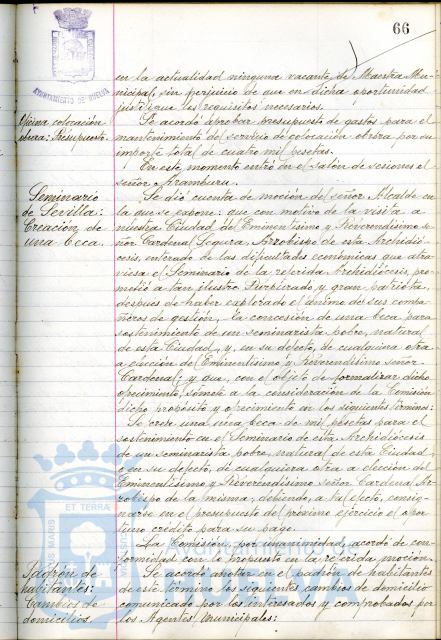 66
AYUNTAMIENTO DE HUELVA
en la actualidad ninguna vacante de Maestra Mu-
nicipal, sin perjuicio de que en dicha oportunidad
justifique los requisitos necesarios.
Oficina colocación
obrera: Presupuesto.
Se acordó aprobar presupuesto de gastos para el
mantenimiento del servicio de colocación obrera por su
importe total de cuatro mil pesetas.
En este momento entró en el salón de sesiones el
señor Aramburu.
Seminario
de Sevilla:
Creación de
una beca.
Se dió cuenta de moción del señor Alcalde en
la que se expone: que con motivo de la visita a
nuestra Ciudad del Eminentísimo y Reverendísimo se-
ñor Cardenal Segura, Arzobispo de esta Archidió-
cesis, enterado de las dificultades económicas que atra-
viesa el Seminario de la referida Archidiócesis, pro-
metió a tan ilustre Purpurado y gran patriota,
después de haber explorado el ánimo de sus compa-
ñeros de gestión, la concesión de una beca para
sostenimiento de un seminarista pobre, natural
de esta Ciudad, y, en su defecto, de cualquiera otra
a elección del Eminentísimo y Reverendísimo señor
Cardenal; y que, con el objeto de formalizar dicho
ofrecimiento, somete a la consideración de la Comisión
dicho propósito y ofrecimiento en los siguientes términos:
Se cree una beca de mil pesetas para el
sostenimiento en el Seminario de esta Archidiócesis
de un seminarista pobre, natural de esta Ciudad,
o en su defecto, de cualquiera otra a elección del
Eminentísimo y Reverendísimo señor Cardenal Ar-
zobispo de la misma, debiendo, a tal efecto, consig-
narse en el presupuesto del próximo ejercicio el opor-
tuno crédito para su pago.
La Comisión, por unanimidad, acordó de con-
formidad con lo propuesto en la referida moción.
Padrón de
habitantes:
Cambios de
domicilios.
Se acordó anotar en el padrón de habitantes
de este término los siguientes cambios de domicilio
comunicado por los interesados y comprobados por
los Agentes Municipales:
ET TERRA
MARIS
Ayuntamiento de